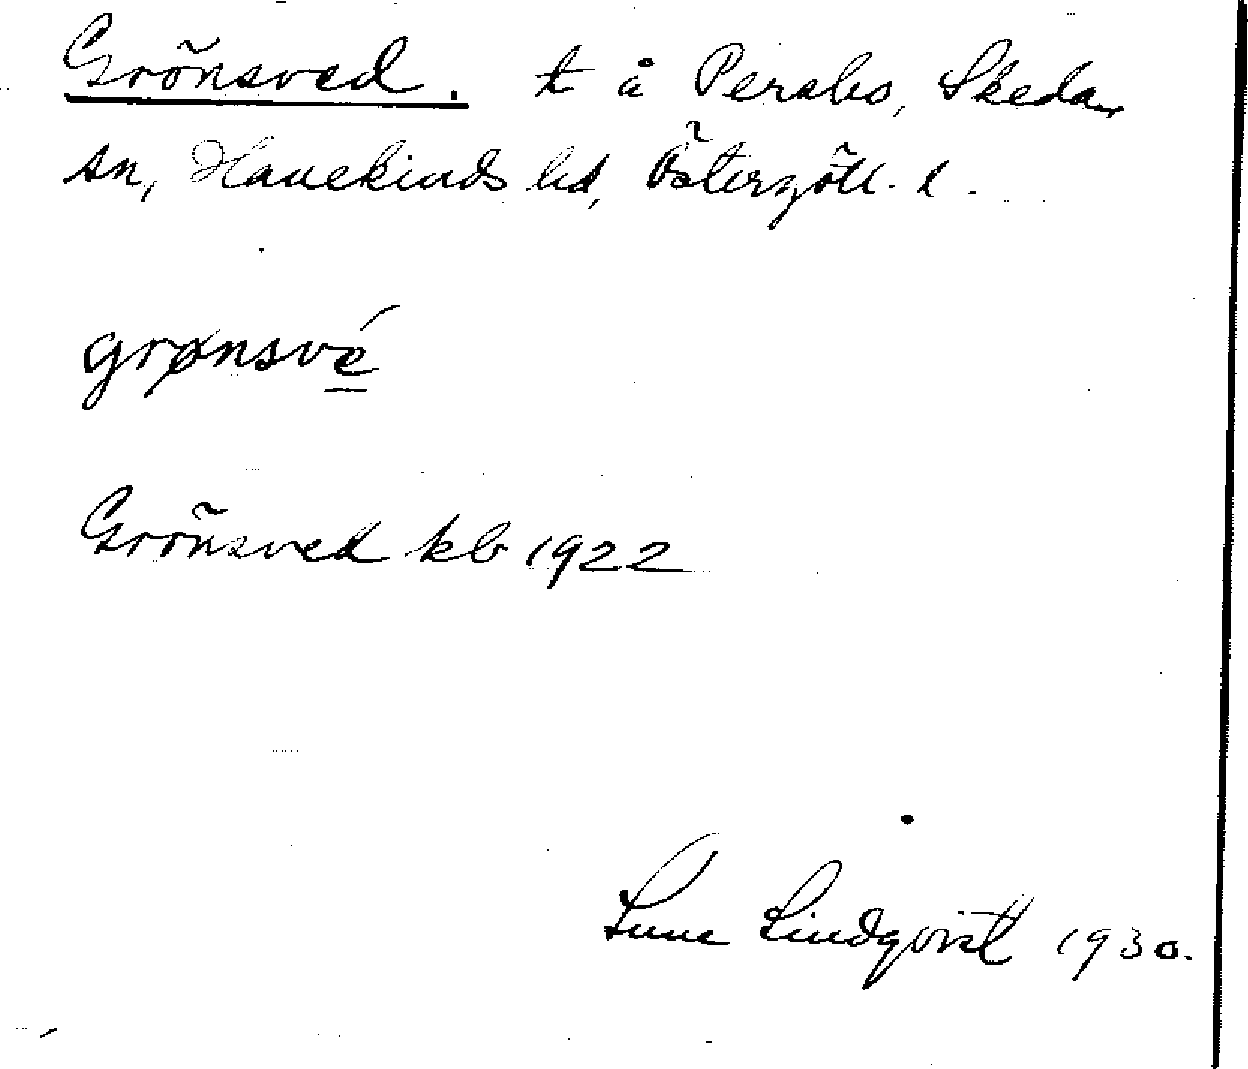 Grönsved. t å Persbo, Skeda
sn, Hanekinds hd, Östergötl. l.
grønsvé
Grönsved kb 1922
Sune Lindqvist 1930.